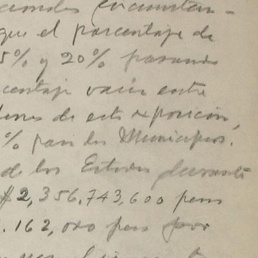 que el porcentaje de
5% y 20% pasando
centaje varía entre
de esta exposición,
% para los Municipios.
de los Estados durante
$2,356,743,600 pesos
.162,000 pesos por